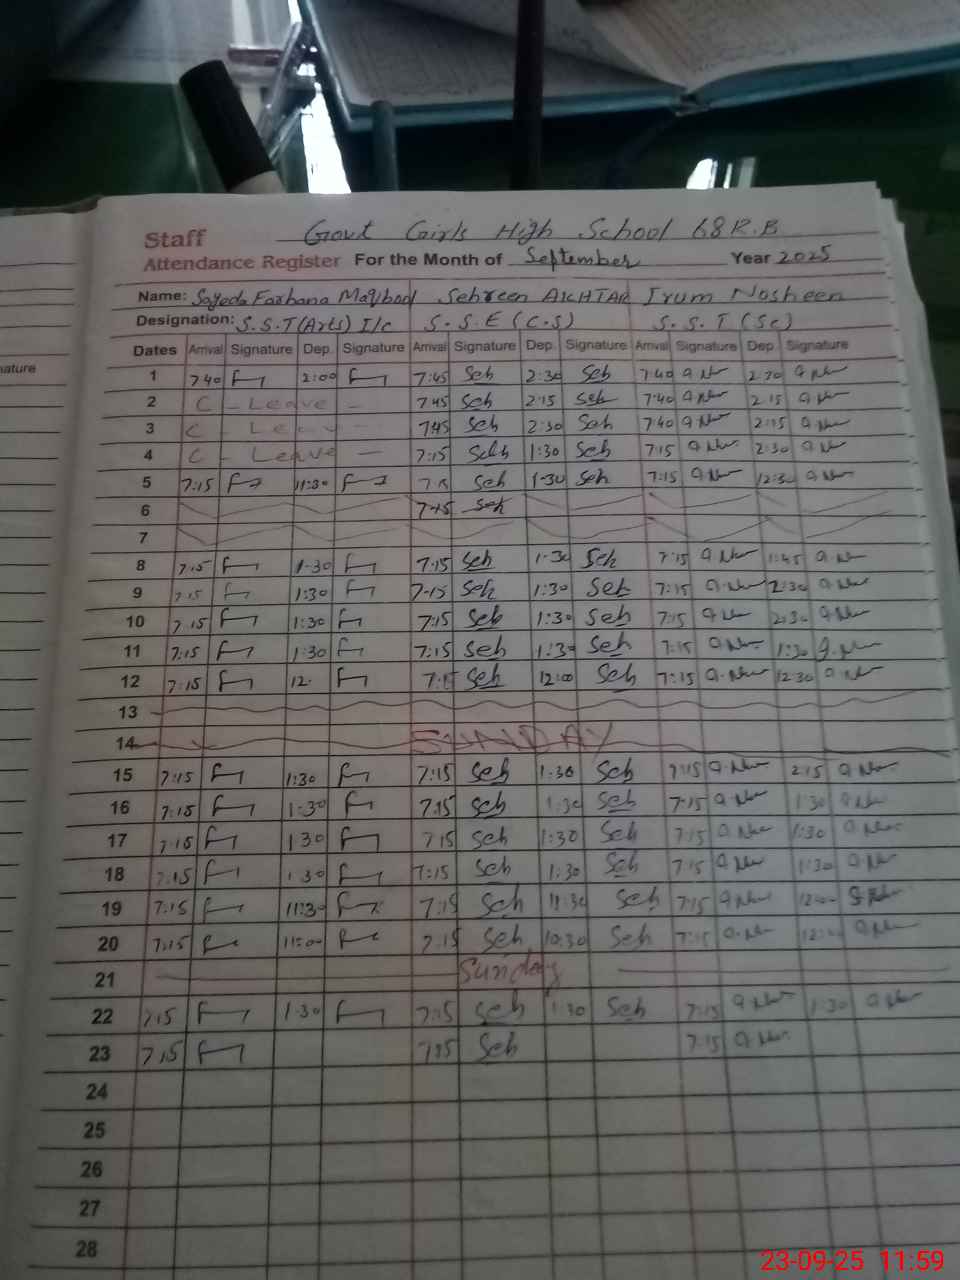 Staff Govt Girls High School 68 R.B
Attendance Register For the Month of September Year 2025
Name: Sayeda Farhana Maqbool Sehreen AKHTAR Irum Nosheen
Designation: S.S.T (Arts) I/c S.S.E (C.S) S.S.T (Sc)
Dates Arrival Signature Dep. Signature Arrival Signature Dep. Signature Arrival Signature Dep. Signature
ature
1 7 40 2:00 7:45 Seh 2:30 Seh 7:40 2:30
2 C - Leave - 7 45 Seh 2:15 Seh 7:40 2:15
3 C - Leave - 7 45 Seh 2:30 Seh 7:40 2:15
4 C - Leave - 7:15 Seh 1:30 Seh 7:15 2:30
5 7:15 11:30 7:15 Seh 1:30 Seh 7:15 12:30
6 7:15 Seh
7
8 7:15 1:30 7:15 Seh 1:30 Seh 7:15 1:45
9 7:15 1:30 7:15 Seh 1:30 Seh 7:15 2:30
10 7:15 1:30 7:15 Seh 1:30 Seh 7:15 2:30
11 7:15 1:30 7:15 Seh 1:30 Seh 7:15 1:30
12 7:15 12. 7:15 Seh 12:00 Seh 7:15 12:30
13
14 SUNDAY
15 7:15 1:30 7:15 Seh 1:30 Seh 7:15 2:15
16 7:15 1:30 7:15 Seh 1:30 Seh 7:15 1:30
17 7:15 1:30 7:15 Seh 1:30 Seh 7:15 1:30
18 7:15 1:30 7:15 Seh 1:30 Seh 7:15 1:30
19 7:15 11:30 7:15 Seh 11:30 Seh 7:15 12:00
20 7:15 11:00 7:15 Seh 10:30 Seh 7:15 12:00
21 Sunday
22 7:15 1:30 7:15 Seh 1:30 Seh 7:15 1:30
23 7:15 7:15 Seh 7:15
24
25
26
27
28
23-09-25 11:59